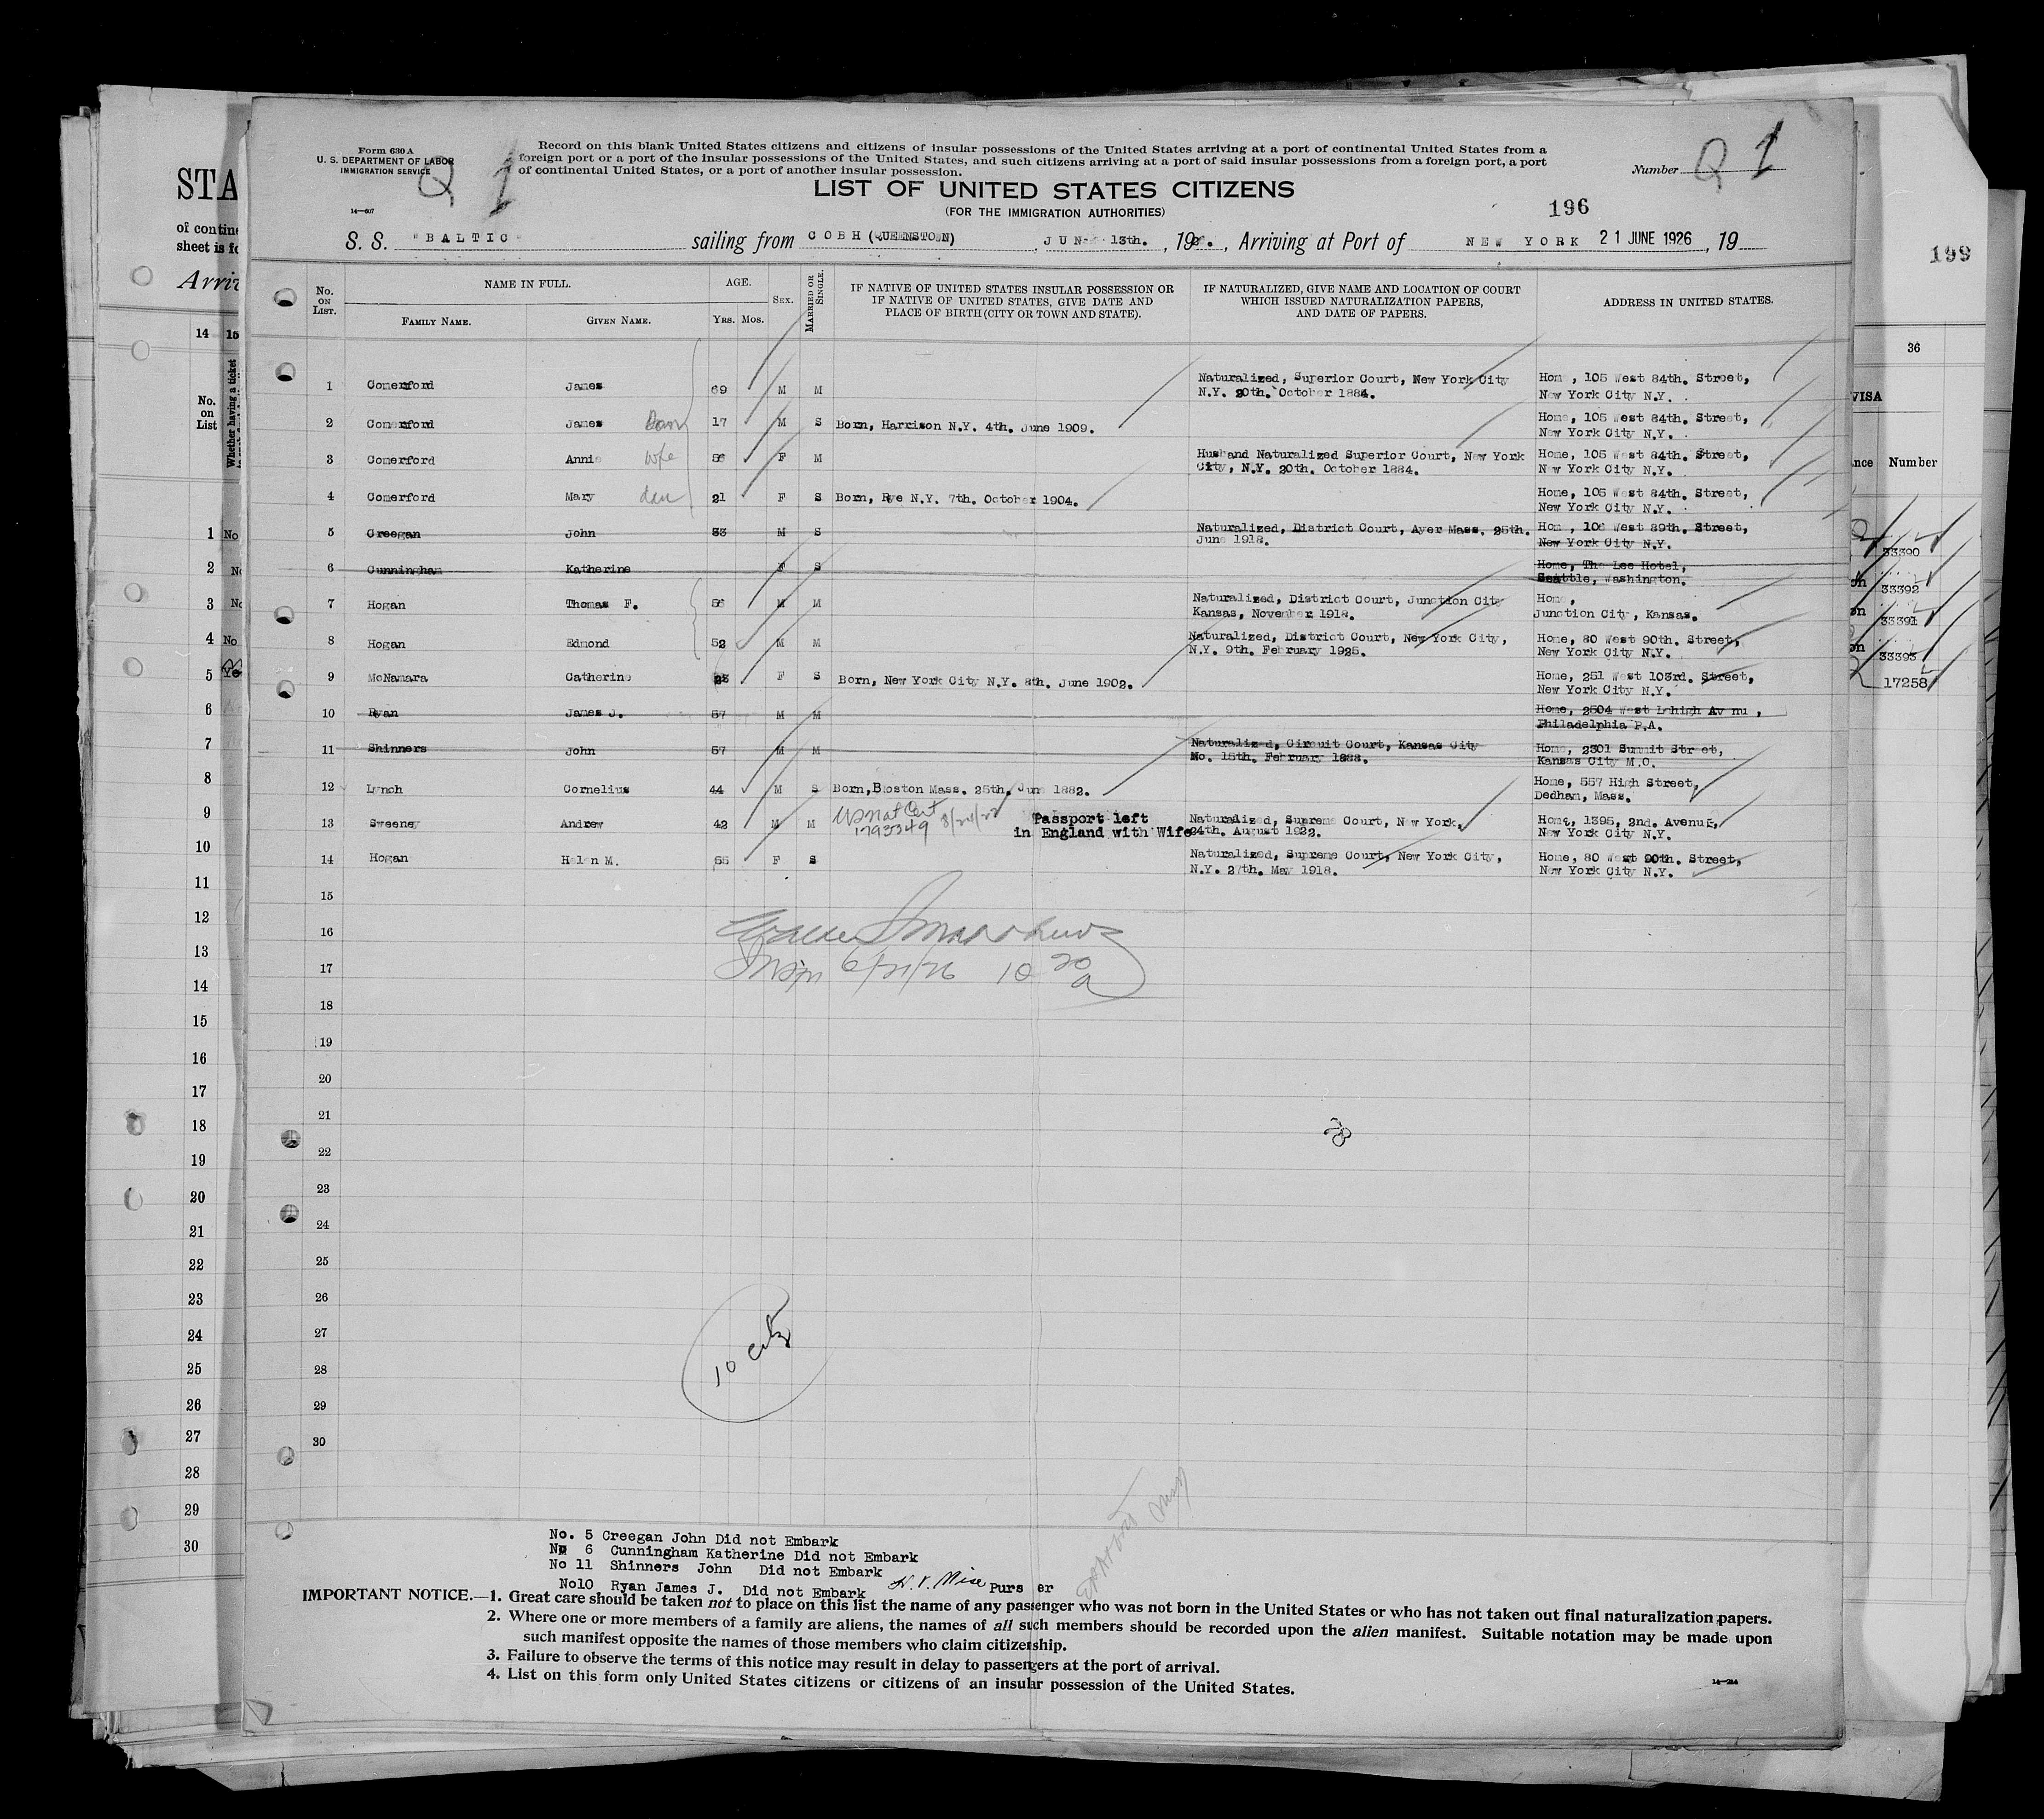 Form 630 A
U. S. DEPARTMENT OF LABOR
IMMIGRATION SERVICE
Q 1
Record on this blank United States citizens and citizens of insular possessions of the United States arriving at a port of continental United States from a
foreign port or a port of the insular possessions of the United States, and such citizens arriving at a port of said insular possessions from a foreign port, a port
of continental United States, or a port of another insular possession.
Number Q 1
LIST OF UNITED STATES CITIZENS
(FOR THE IMMIGRATION AUTHORITIES)
196
14—607
S. S. "BALTIC" sailing from COBH (QUEENSTOWN), JUNE 13th., 19, Arriving at Port of NEW YORK 21 JUNE 1926, 19
No. ON LIST.
NAME IN FULL.
FAMILY NAME. GIVEN NAME.
AGE.
YRS. MOS.
SEX.
MARRIED OR SINGLE.
IF NATIVE OF UNITED STATES INSULAR POSSESSION OR
IF NATIVE OF UNITED STATES, GIVE DATE AND
PLACE OF BIRTH (CITY OR TOWN AND STATE).
IF NATURALIZED, GIVE NAME AND LOCATION OF COURT
WHICH ISSUED NATURALIZATION PAPERS,
AND DATE OF PAPERS.
ADDRESS IN UNITED STATES.
1 Comerford James 69 M M Naturalized, Superior Court, New York City Home, 105 West 84th. Street,
N.Y. 20th. October 1884. New York City N.Y.
2 Comerford James 17 M S Born, Harrison N.Y. 4th. June 1909. Home, 105 West 84th. Street,
New York City N.Y.
3 Comerford Annie wife 56 F M Husband Naturalized Superior Court, New York Home, 105 West 84th. Street,
City, N.Y. 20th. October 1884. New York City N.Y.
4 Comerford Mary dau 21 F S Born, Rye N.Y. 7th. October 1904. Home, 105 West 84th. Street,
New York City N.Y.
5 Creegan John 33 M S Naturalized, District Court, Ayer Mass. 25th. Home, 106 West 89th. Street,
June 1918. New York City N.Y.
6 Cunningham Katherine F S Home, The Lee Hotel,
Seattle, Washington.
7 Hogan Thomas F. 56 M M Naturalized, District Court, Junction City Home,
Kansas, November 1918. Junction City, Kansas.
8 Hogan Edmond 52 M M Naturalized, District Court, New York City, Home, 80 West 90th. Street,
N.Y. 9th. February 1925. New York City N.Y.
9 McNamara Catherine 23 F S Born, New York City N.Y. 8th. June 1902. Home, 251 West 103rd. Street,
New York City N.Y.
10 Ryan James J. 57 M M Home, 2504 West Lehigh Avenue,
Philadelphia P.A.
11 Shinners John 57 M M Naturalized, Circuit Court, Kansas City Home, 2301 Summit Street,
Mo. 15th. February 1888. Kansas City M.O.
12 Lynch Cornelius 44 M S Born, Boston Mass. 25th. June 1882. Home, 557 High Street,
Dedham, Mass.
13 Sweeney Andrew 42 M M US Nat Cert 1793349 8/24/22 Passport left Naturalized, Supreme Court, New York, Home, 1395, 2nd. Avenue,
in England with Wife 24th. August 1922. New York City N.Y.
14 Hogan Helen M. 55 F S Naturalized, Supreme Court, New York City, Home, 80 West 90th. Street,
N.Y. 27th. May 1918. New York City N.Y.
15
16
17
6/21/26 10 20 a
18
19
20
21
22
23
24
25
26
27
28
10 cits
29
30
No. 5 Creegan John Did not Embark
No 6 Cunningham Katherine Did not Embark
No 11 Shinners John Did not Embark
No10 Ryan James J. Did not Embark Purser
IMPORTANT NOTICE.—1. Great care should be taken not to place on this list the name of any passenger who was not born in the United States or who has not taken out final naturalization papers.
2. Where one or more members of a family are aliens, the names of all such members should be recorded upon the alien manifest. Suitable notation may be made upon
such manifest opposite the names of those members who claim citizenship.
3. Failure to observe the terms of this notice may result in delay to passengers at the port of arrival.
4. List on this form only United States citizens or citizens of an insular possession of the United States.
STA
of contine
sheet is fo
Arriv
14 15
No. on List
Whether having a ticket
1 No
2 No
3 No
4 No
5 Yes
6
7
8
9
10
11
12
13
14
15
16
17
18
19
20
21
22
23
24
25
26
27
28
29
30
199
36
VISA
Number
33390
33392
33391
33393
17258